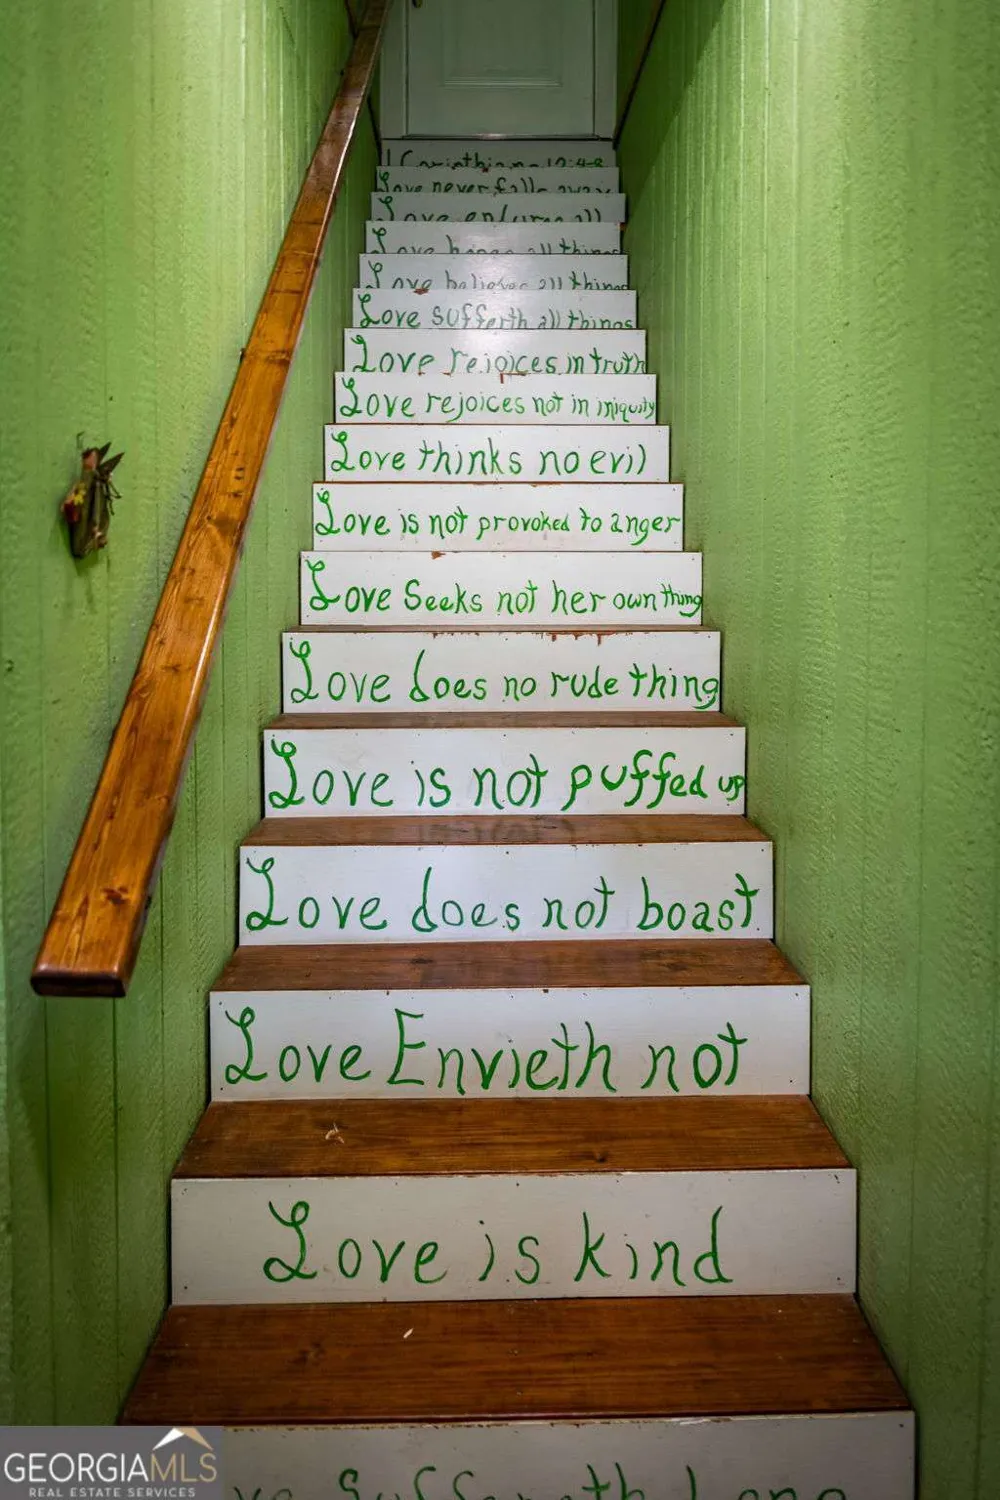 1 Corinthians 13:4-8
Love never falls away
Love endures all
Love hopes all things
Love believes all things
Love sufferth all things
Love rejoices in truth
Love rejoices not in iniquity
Love thinks no evil
Love is not provoked to anger
Love Seeks not her own thing
Love does no rude thing
Love is not puffed up
Love does not boast
Love Envieth not
Love is kind
Long
GEORGIAMLS
REAL ESTATE SERVICES